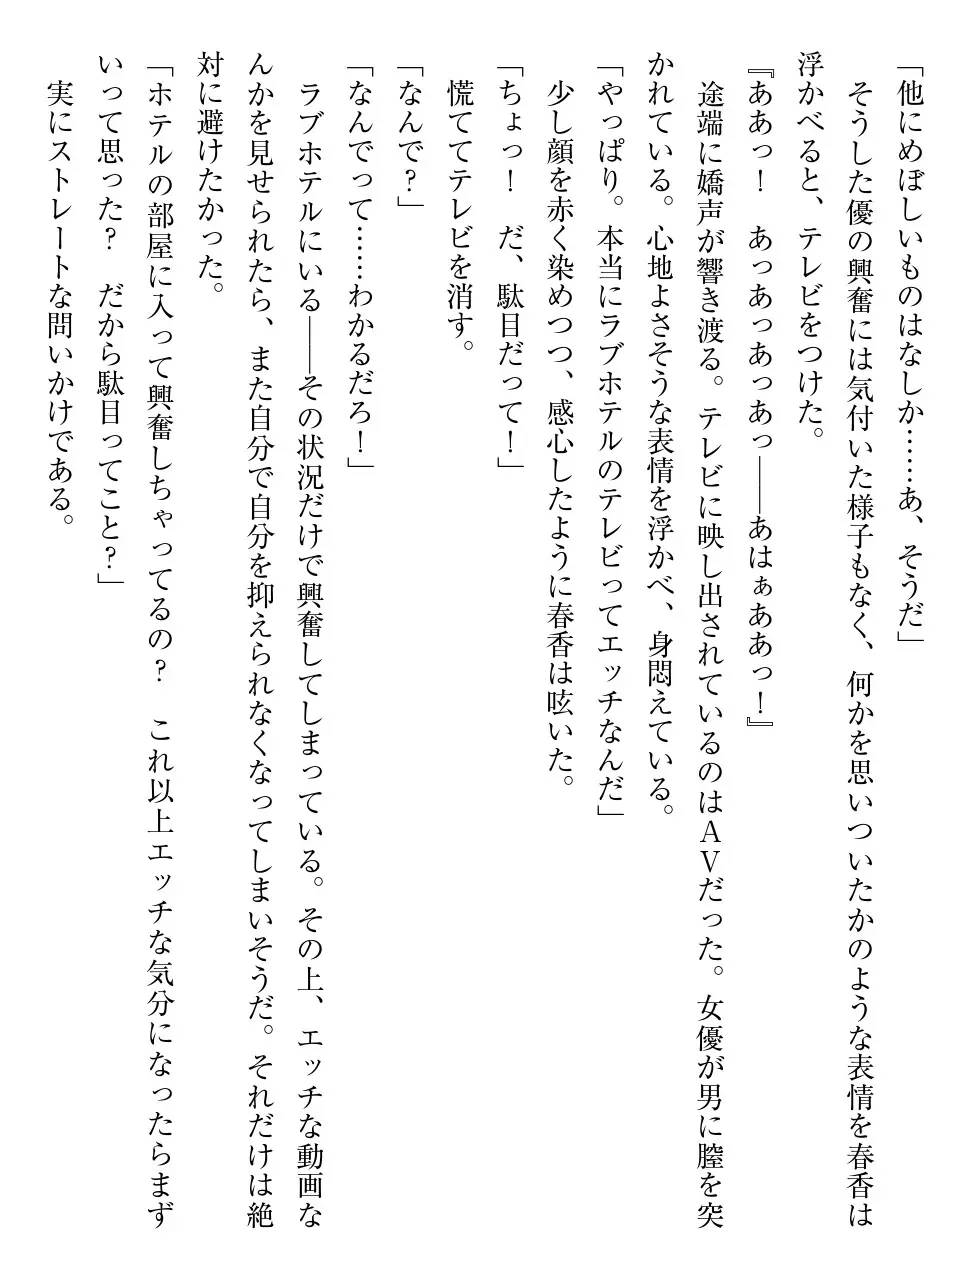 「他にめぼしいものはなしか……あ、そうだ」
　そうした優の興奮には気付いた様子もなく、何かを思いついたかのような表情を春香は
浮かべると、テレビをつけた。
『ああっ！　あっあっあっあっ――あはぁああっ！』
　途端に嬌声が響き渡る。テレビに映し出されているのはＡＶだった。女優が男に膣を突
かれている。心地よさそうな表情を浮かべ、身悶えている。
「やっぱり。本当にラブホテルのテレビってエッチなんだ」
　少し顔を赤く染めつつ、感心したように春香は呟いた。
「ちょっ！　だ、駄目だって！」
　慌ててテレビを消す。
「なんで？」
「なんでって……わかるだろ！」
　ラブホテルにいる――その状況だけで興奮してしまっている。その上、エッチな動画な
んかを見せられたら、また自分で自分を抑えられなくなってしまいそうだ。それだけは絶
対に避けたかった。
「ホテルの部屋に入って興奮しちゃってるの？　これ以上エッチな気分になったらまず
いって思った？　だから駄目ってこと？」
　実にストレートな問いかけである。